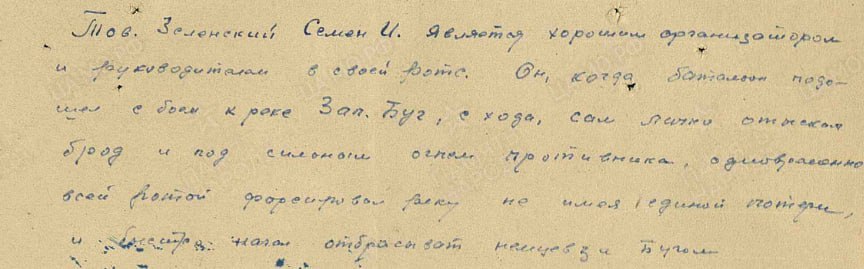 Тов. Зеленский Семен И. является хорошим организатором
и руководителем в своей роте. Он, когда батальон подо-
шел с боем к реке Зап. Буг, с хода, сам лично отыскал
брод и под сильным огнем противника, одновременно
всей ротой форсировал реку не имея единой потери,
и быстро начал отбрасыват немцев за Бугом